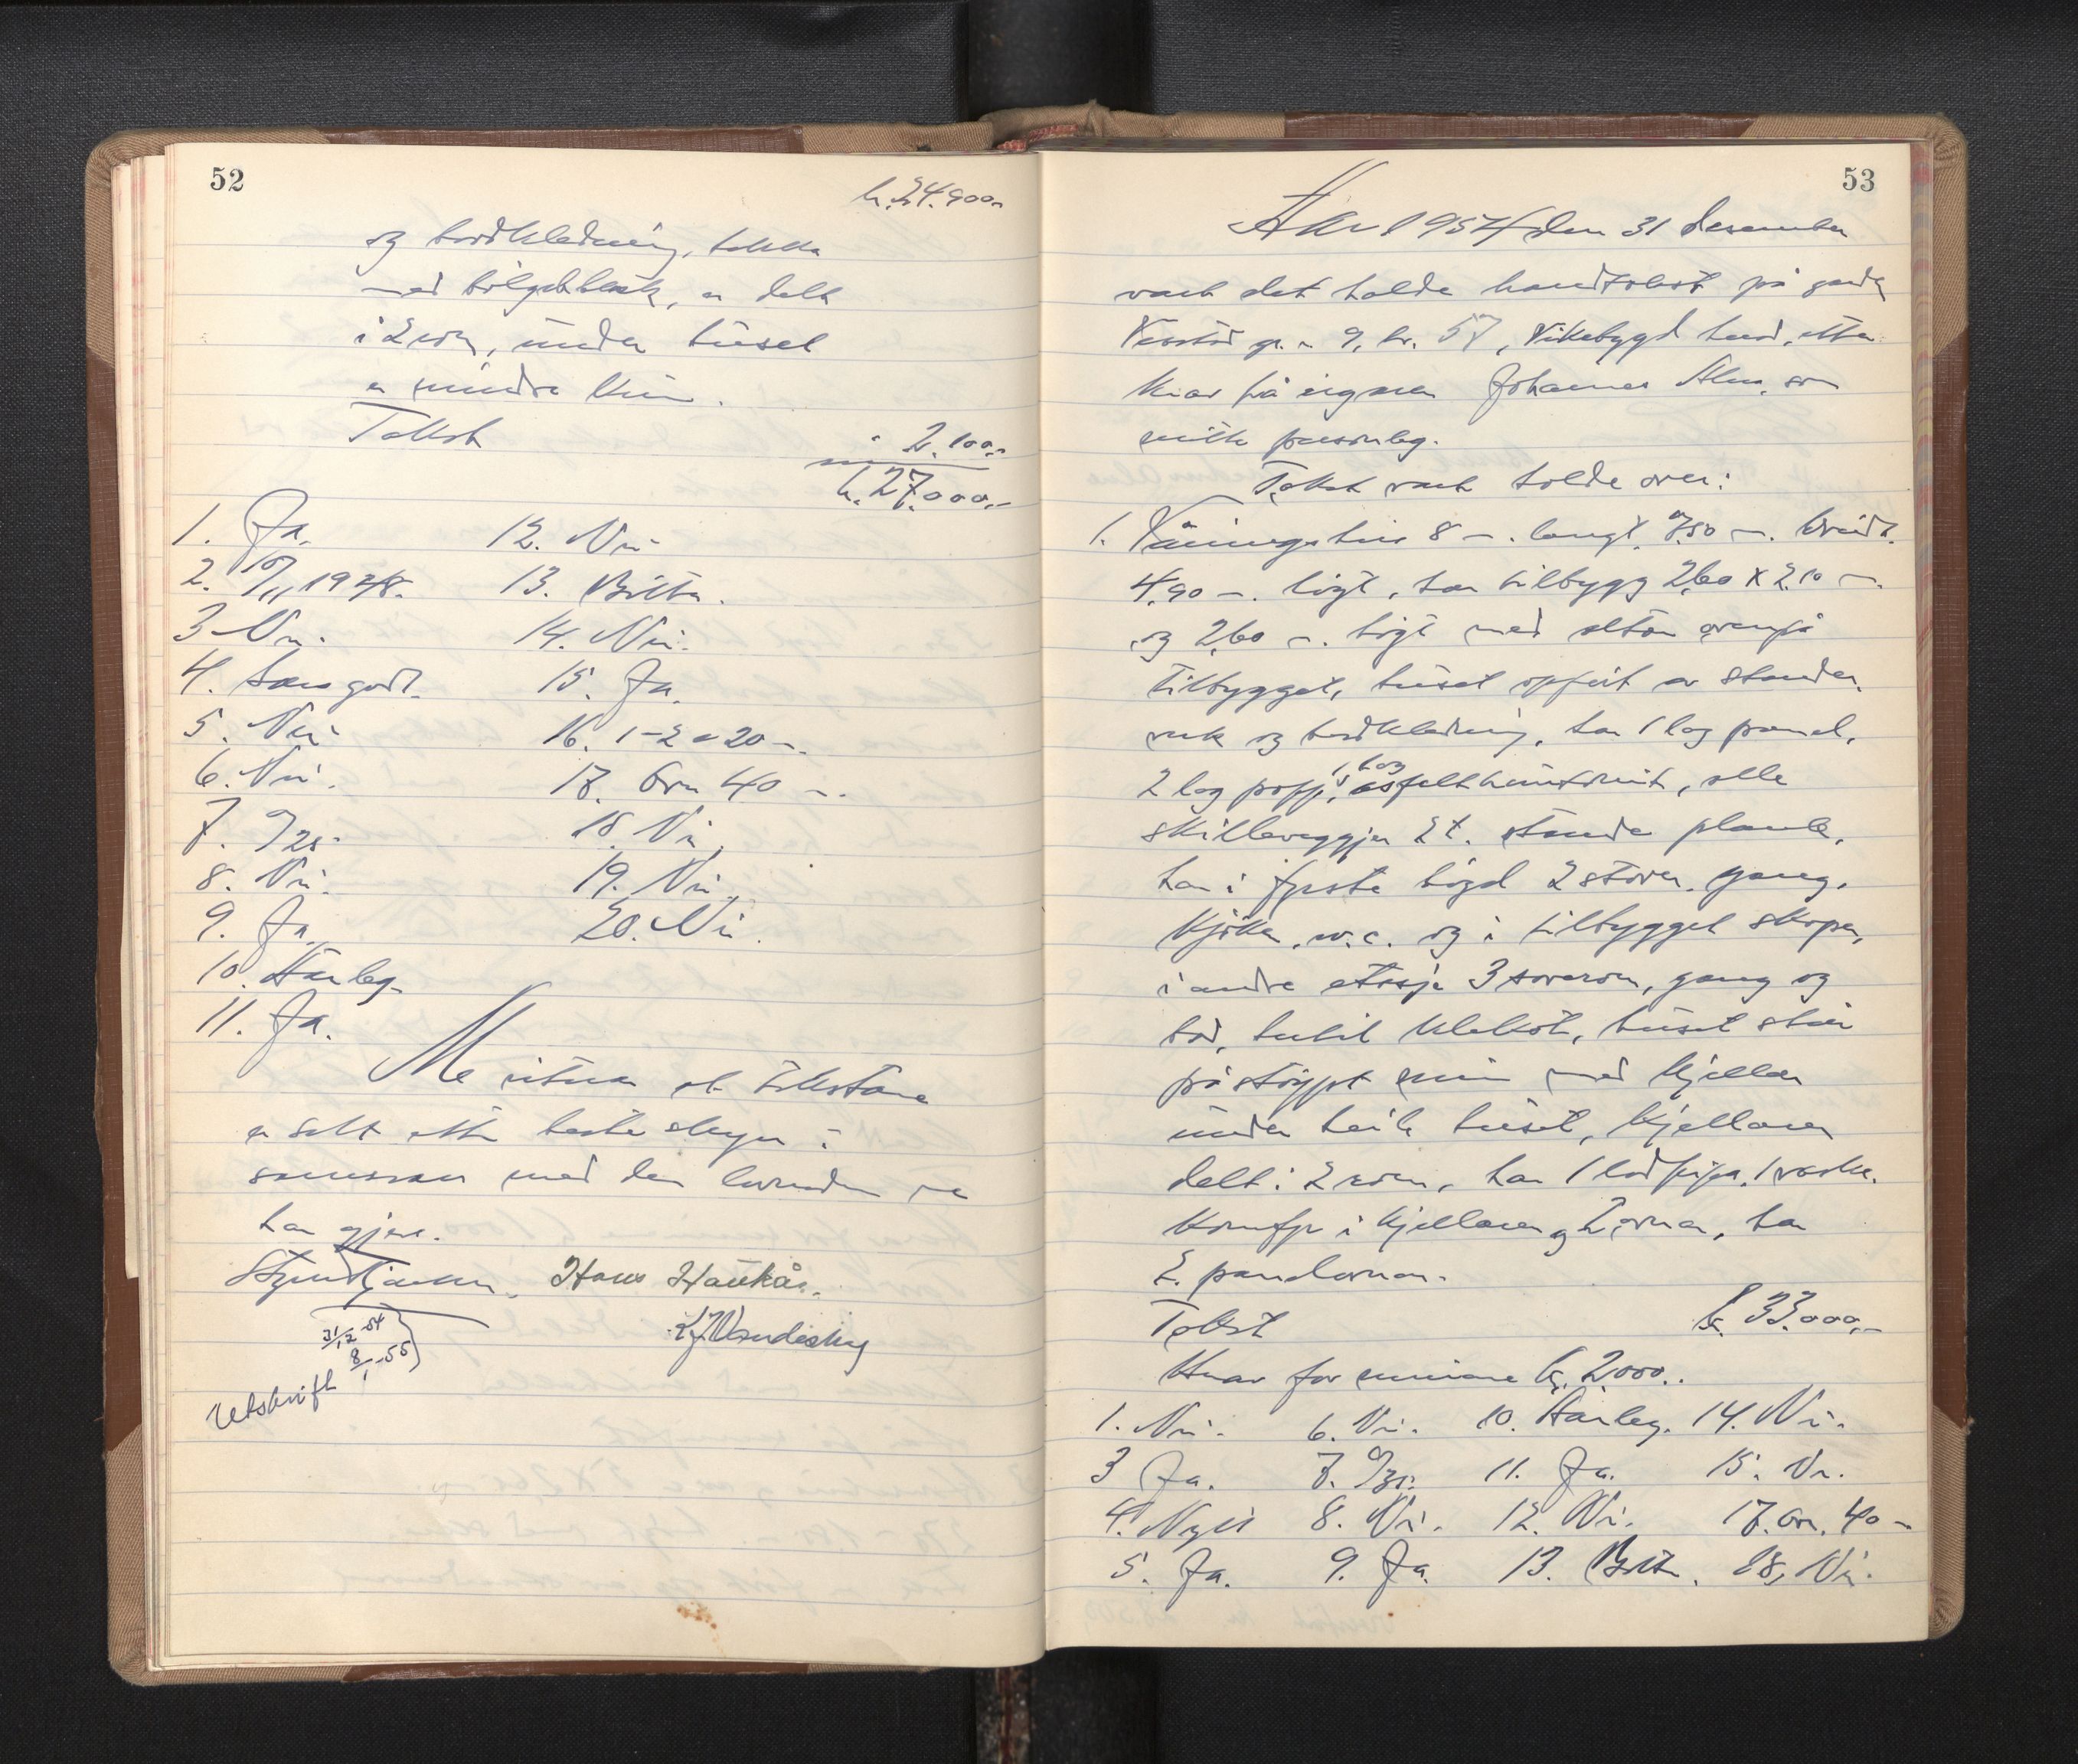 52
kr. 24.900.-
og bordkledning, tekka
med bölgeblekk, er delt
i 2 rom, under huset
er mindre
Takst
" 2.100.-
kr. 27.000.-
1. Ja. 12. Nei.
2. 10/11 1948. 13. Bitta.
3 Nei. 14. Nei.
4. Særs godt. 15. Ja.
5. Nei. 16. 1-2 a 20 m.
6. Nei. 17. Om 40 m.
7. 9/20. 18. Nei.
8. Nei. 19. Nei.
9. Ja. 20. Nei.
10. Hårleg.
11. Ja.
Me vitnar at takstane
er sett etter beste skjyn i
samsvar med den lovnaden me
har gjeve.
Hans Haukås.
31/12-54
8/1-55
Utskrift
53
År 1954 den 31 desember
vart det halde branntakst på garden
gr. nr. 9, br. 57, Vikebygd herad, etter
krav frå eigaren Johannes Alne, som
møtte personleg.
Takst vart halde over:
1. Våningshus 8 m. langt, 7.50 m. breidt.
4.90 m. högt, har tilbygg 2,60 x 2,10 m.
og 2,60 m. högt med altan ovenpå
tilbygget, huset oppfört av stender-
verk og bordkledning, har 1 lag panel,
2 lag papp, 1 lag asfalt huntonit, alle
skilleveggjer 2 t. ståande plank,
har i fyrste högd 2 stover, gang,
kjöken, w.c. og i tilbygget skåper,
i andre etasje 3 soverom, gang og
bad, hebit kleskott, huset står
på stöypt mur med kjellar
under heile huset, kjellaren
delt i 2 rom, har 1 lod pipa, 1 vaske-
komfyr i kjellaren og 2 omnar, har
2. panelomnar.
Takst kr. 33.000,-
Herav for murane kr. 2000.-
1. Nei. 6. Nei. 10. Hårleg. 14. Nei.
3 Ja. 7. 9/30. 11. Ja. 15. Nei.
4. Nytt 8. Nei. 12. Nei. 17. Om. 40 m
5. Ja. 9. Ja. 13. Bitta. 18. Nei.